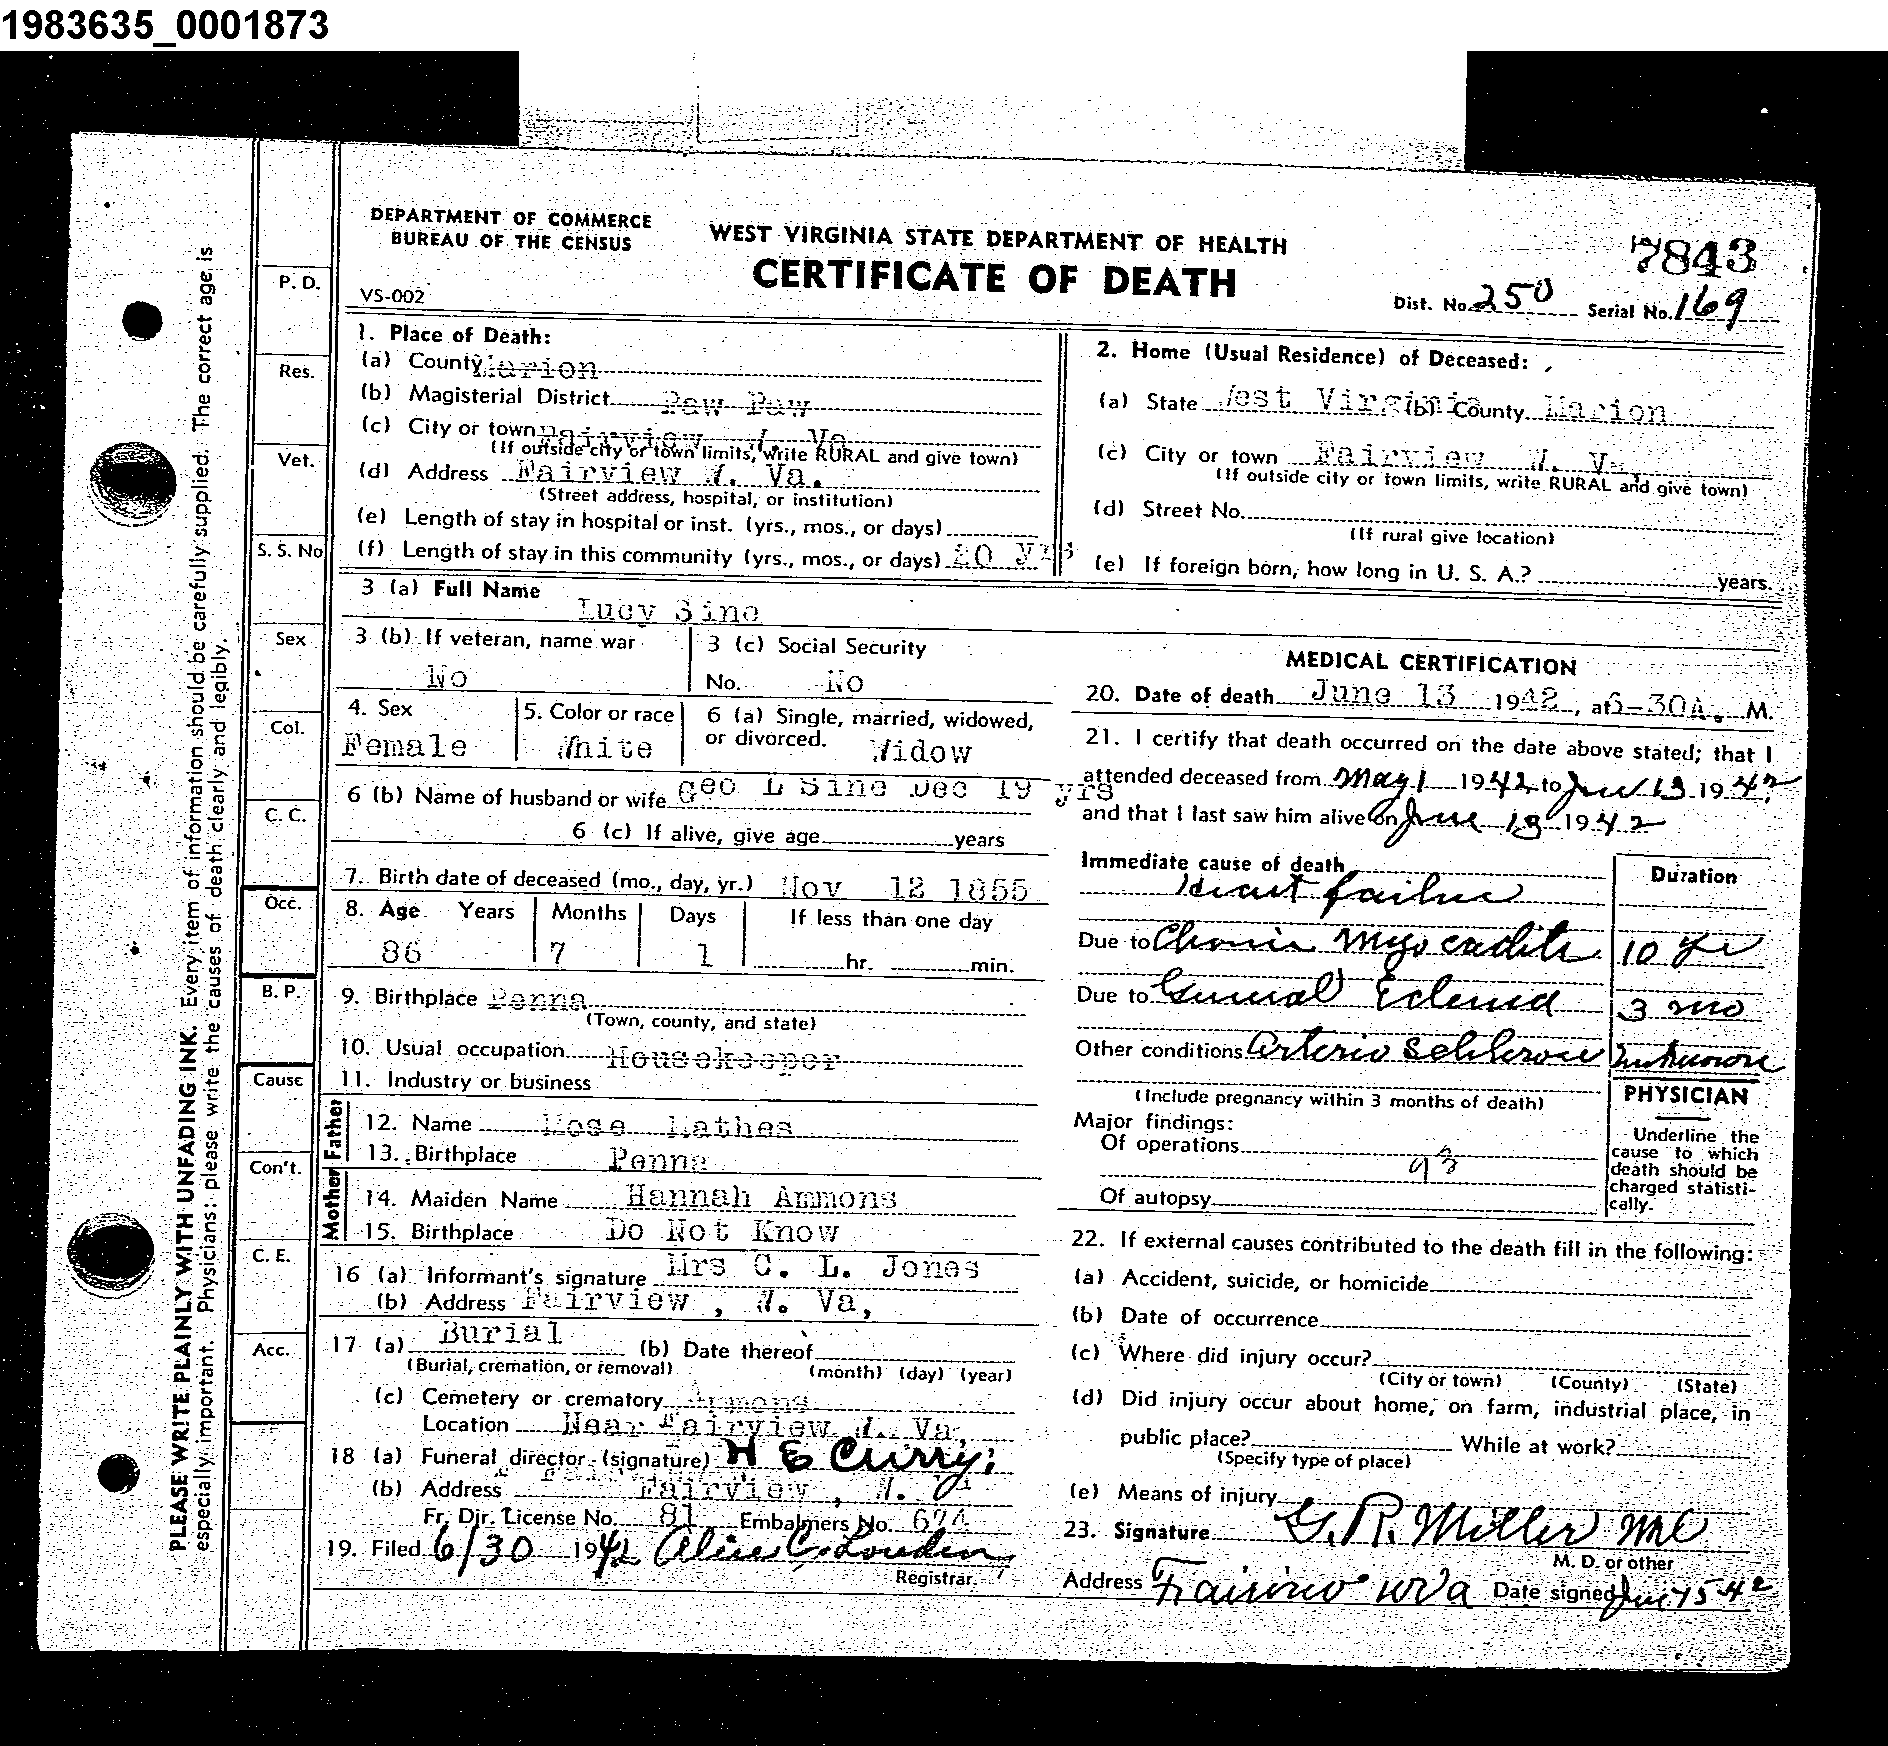 1983635_0001873
DEPARTMENT OF COMMERCE
BUREAU OF THE CENSUS
WEST VIRGINIA STATE DEPARTMENT OF HEALTH
CERTIFICATE OF DEATH
7843
VS-002
Dist. No. 250 Serial No. 169
PLEASE WRITE PLAINLY WITH UNFADING INK. Every item of information should be carefully supplied. The correct age is
especially important. Physicians: please write the causes of death clearly and legibly.
P. D.
Res.
Vet.
S. S. No
Sex
Col.
C. C.
Occ.
B. P.
Cause
Con't.
C. E.
Acc.
1. Place of Death:
(a) County Marion
(b) Magisterial District Paw Paw
(c) City or town Fairview W. Va
(If outside city or town limits, write RURAL and give town)
(d) Address Fairview W. Va.
(Street address, hospital, or institution)
(e) Length of stay in hospital or inst. (yrs., mos., or days)
(f) Length of stay in this community (yrs., mos., or days) 20 yrs
2. Home (Usual Residence) of Deceased:
(a) State West Virginia (b) County Marion
(c) City or town Fairview W. Va
(If outside city or town limits, write RURAL and give town)
(d) Street No.
(If rural give location)
(e) If foreign born, how long in U. S. A.? years.
3 (a) Full Name
Lucy Sine
3 (b) If veteran, name war
No
3 (c) Social Security
No. No
4. Sex
Female
5. Color or race
White
6 (a) Single, married, widowed,
or divorced. Widow
6 (b) Name of husband or wife Geo L Sine Dec 19 yrs
6 (c) If alive, give age years
7. Birth date of deceased (mo., day, yr.) Nov 12 1855
8. Age Years Months Days If less than one day
86 7 1 hr. min.
9. Birthplace Penna
(Town, county, and state)
10. Usual occupation Housekeeper
11. Industry or business
Father
12. Name Mose Lathes
13. Birthplace Penna
Mother
14. Maiden Name Hannah Ammons
15. Birthplace Do Not Know
16 (a) Informant's signature Mrs C. L. Jones
(b) Address Fairview , W. Va,
17 (a) Burial (b) Date thereof
(Burial, cremation, or removal) (month) (day) (year)
(c) Cemetery or crematory Ammons
Location Near Fairview W. Va,
18 (a) Funeral director (signature) H E Curry;
(b) Address Fairview , W. Va
Fr. Dir. License No. 81 Embalmers No. 674
19. Filed 6/30 1942 Alice C. Louden
Registrar
MEDICAL CERTIFICATION
20. Date of death June 13 1942, at 6-30A. M.
21. I certify that death occurred on the date above stated; that I
attended deceased from May 1 1942 to Jun 13 1942
and that I last saw him alive on June 13 1942
Immediate cause of death Duration
Heart failure
Due to Chronic Myocadits 10 yr
Due to General Edema 3 mo
Other conditions Arterio Schlerose unknown
(Include pregnancy within 3 months of death)
PHYSICIAN
Underline the
cause to which
death should be
charged statisti-
cally.
Major findings:
Of operations
93
Of autopsy
22. If external causes contributed to the death fill in the following:
(a) Accident, suicide, or homicide
(b) Date of occurrence
(c) Where did injury occur?
(City or town) (County) (State)
(d) Did injury occur about home, on farm, industrial place, in
public place? While at work?
(Specify type of place)
(e) Means of injury
23. Signature G. R. Miller MD
M. D. or other
Address Fairview W Va Date signed Jun 15 42